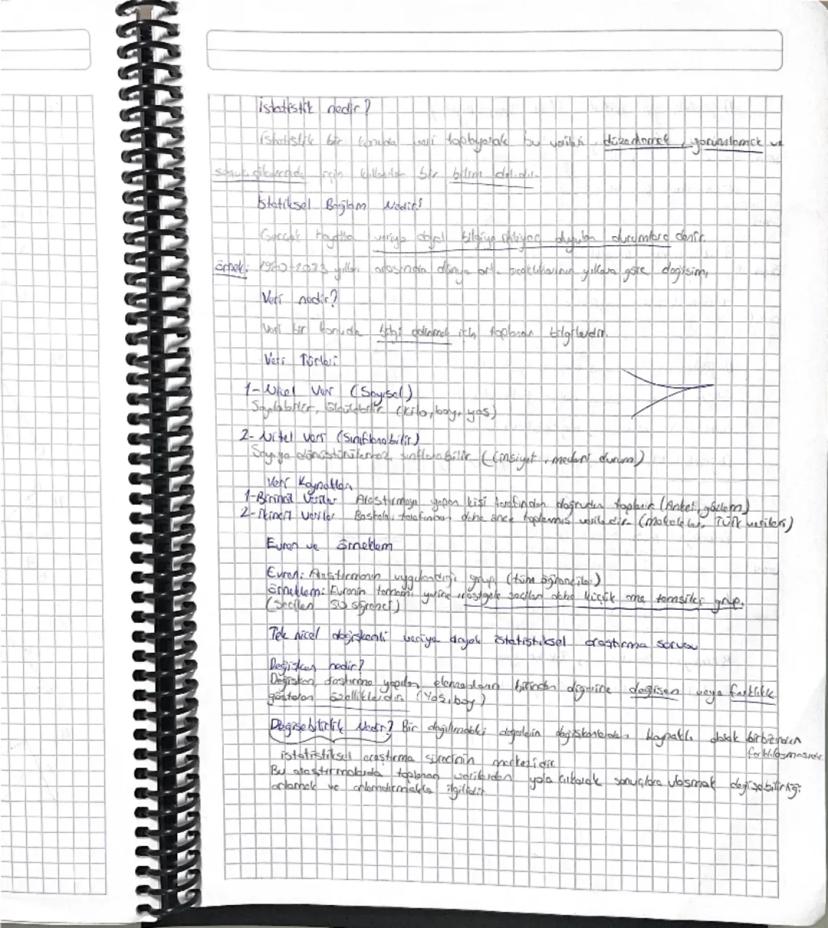 İstatistik nedir?
İstatistik bir konuda veri toplayarak bu verileri düzenlemek, yorumlamak ve
için kullanılan bir bilim dalıdır.
İstatiksel Bağlam Nedir?
Gerçek hayatta veriye dayal bilgiye ihtiyaç duyulan durumlara denir.
örnek: yılları arasında dünya ort. sıcaklıklarının yıllara göre değişimi
Veri nedir?
Veri bir konuda bilgi edinmek için toplanan bilgilerdir.
Veri Türleri
1- Nicel Veri (Sayısal)
Sayılabilir, ölçülebilir (kilo, boy, yaş)
2- Nitel veri (Sınıflanabilir)
Sayıya dönüştürülemez, sınıflanabilir (Cinsiyet, medeni durum)
Veri Kaynakları
1- Birincil Veriler Araştırmayı yapan kişi tarafından doğrudan toplanır (Anket, gözlem)
2- İkincil Veriler Başkaları tarafından daha önce toplanmış verilerdir (makaleler, TÜİK verileri)
Evren ve örneklem
Evren: Araştırmanın uygulandığı grup (tüm öğrenciler)
örneklem: Evrenin tamamı yerine rastgele seçilen daha küçük ama temsilci grup.
(Seçilen 50 öğrenci)
Tek nicel değişkenli veriye dayalı istatistiksel araştırma sorusu
Değişken nedir?
Değişken araştırma yapılan elemanların birinden diğerine değişen veya farklılık
gösteren özelliklerdir (Yaş, boy)
Değişebilirlik Nedir? Bir dağılımdaki değerlerin değişkenlerden kaynaklı olarak birbirinden
farklılaşmasıdır
istatistiksel araştırma sürecinin merkezidir
Bu araştırmalarda toplanan verilerden yola çıkarak sonuçlara ulaşmak değişebilirliği
anlamak ve anlamdırmakla ilgilidir